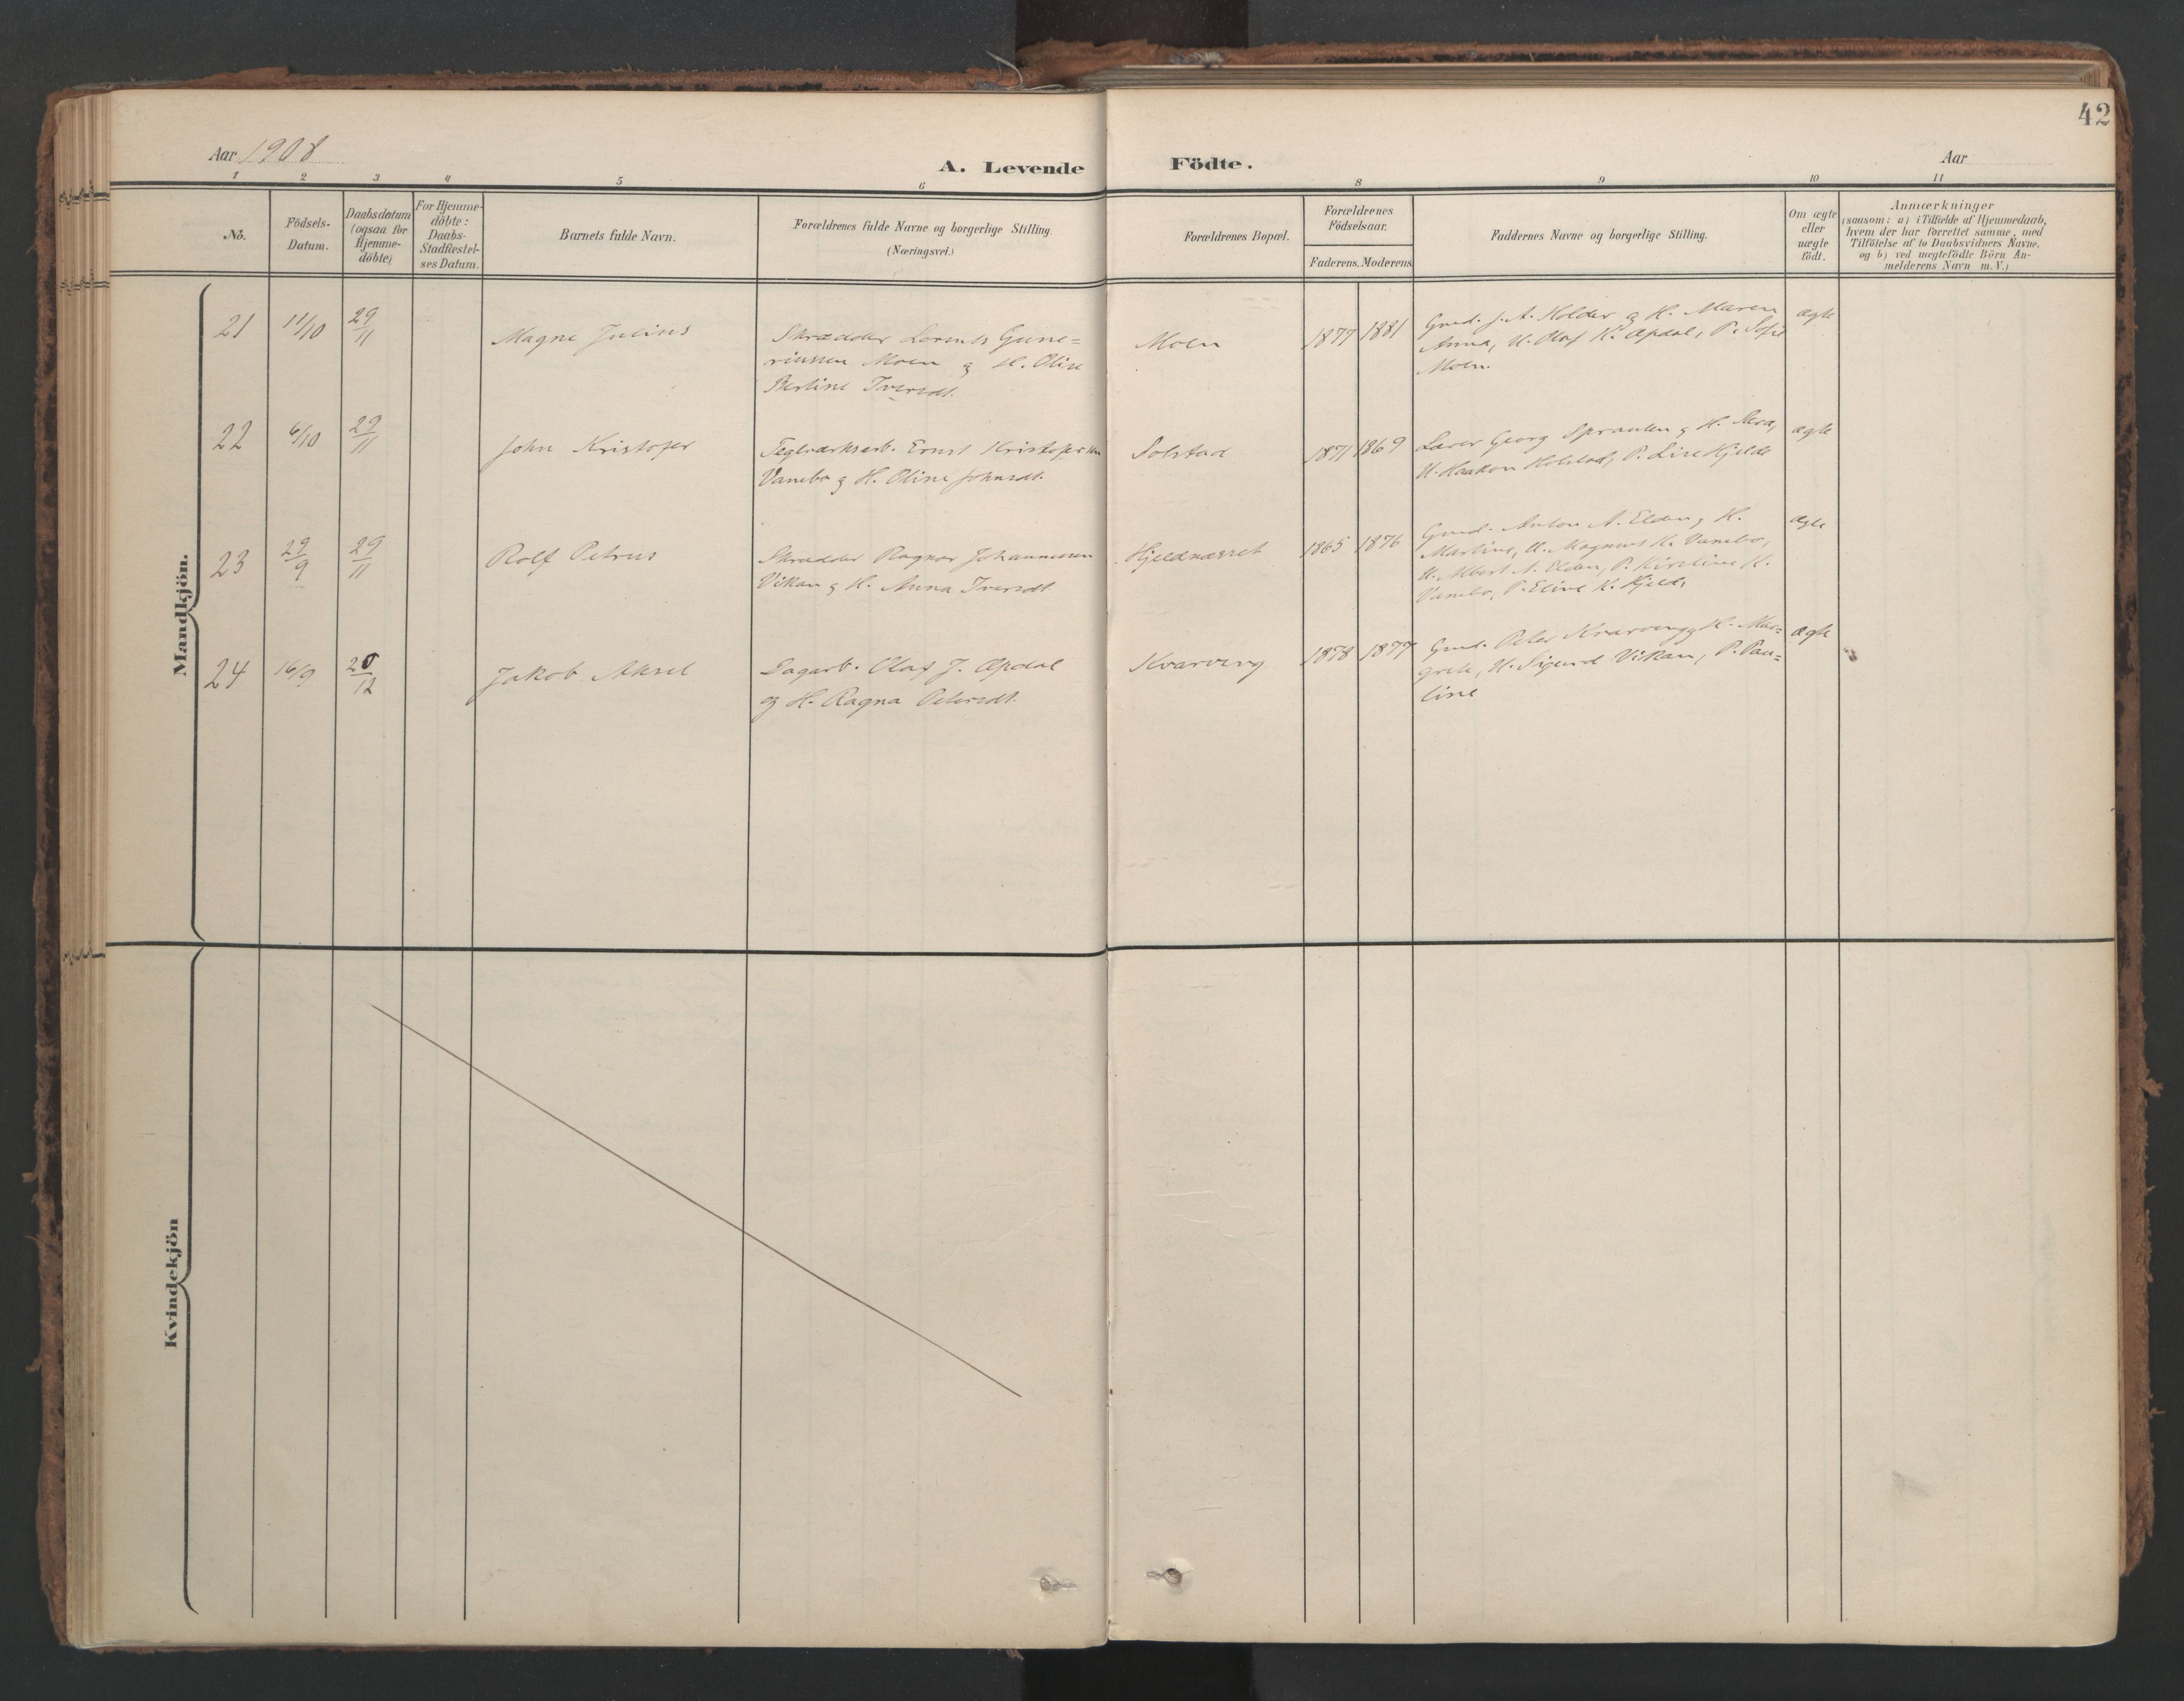 42
Aar 1908
A. Levende Födte.
Aar
1 2 3 4 5 6 8 9 10 11
No.
Födsels-
Datum.
Daabsdatum
(ogsaa for
Hjemme-
döbte)
For Hjemme-
döbte:
Daabs-
Stadfæstel-
ses Datum.
Barnets fulde Navn.
Forældrenes fulde Navne og borgerlige Stilling.
(Næringsvei.)
Forældrenes Bopæl.
Forældrenes
Födselsaar.
Faderens. Moderens.
Faddernes Navne og borgerlige Stilling.
Om ægte
eller
uægte
födt.
Anmærkninger
(saasom: a) i Tilfælde af Hjemmedaab,
hvem der har forrettet samme, med
Tilföielse af to Daabsvidners Navne.
og b) ved uægtefödte Börn An-
melderens Navn m. V.)
Mandkjön.
21
11/10
29/11
Magne Julius
Skrædder Lorents Gune=
riussen Moen og H. Oline
Berline Iversdt.
Moen
1877 1881
Gmd. J. A. Holder og H. Maren
Anna, U. Olaf K. Opdal, P. Sofie
Moen.
ægte
22
6/10
29/11
John Kristofer
Teglværksarb. Ernst Kristofersen
Vanebo og H. Oline Johnsdt.
Solstad
1871 1869
Lærer Georg Sprauten og H.
U. Haakon Holstad, P. Lise Hjelde
ægte
23
29/9
29/11
Rolf Petrus
Skrædder Ragnar Johannesen
Vikan og H. Anna Iversdt.
Hjeldnesset
1865 1876
Gmd. Anton A. Elden og H.
Martine, U. Magnus K. Vanebo,
U. Albert A. Elden, P. Kirstine K.
Vanebo, P. Eline K. Hjelde
ægte
24
16/9
20/12
Jakob Aksel
Dagarb. Olaf J. Opdal
og H. Ragna Petersdt.
Kvarving
1878 1877
Gmd. Peter Kvarving og H. Mar=
grete, U. Sigurd Vikan, P. Pau=
line
ægte
Kvindekjön